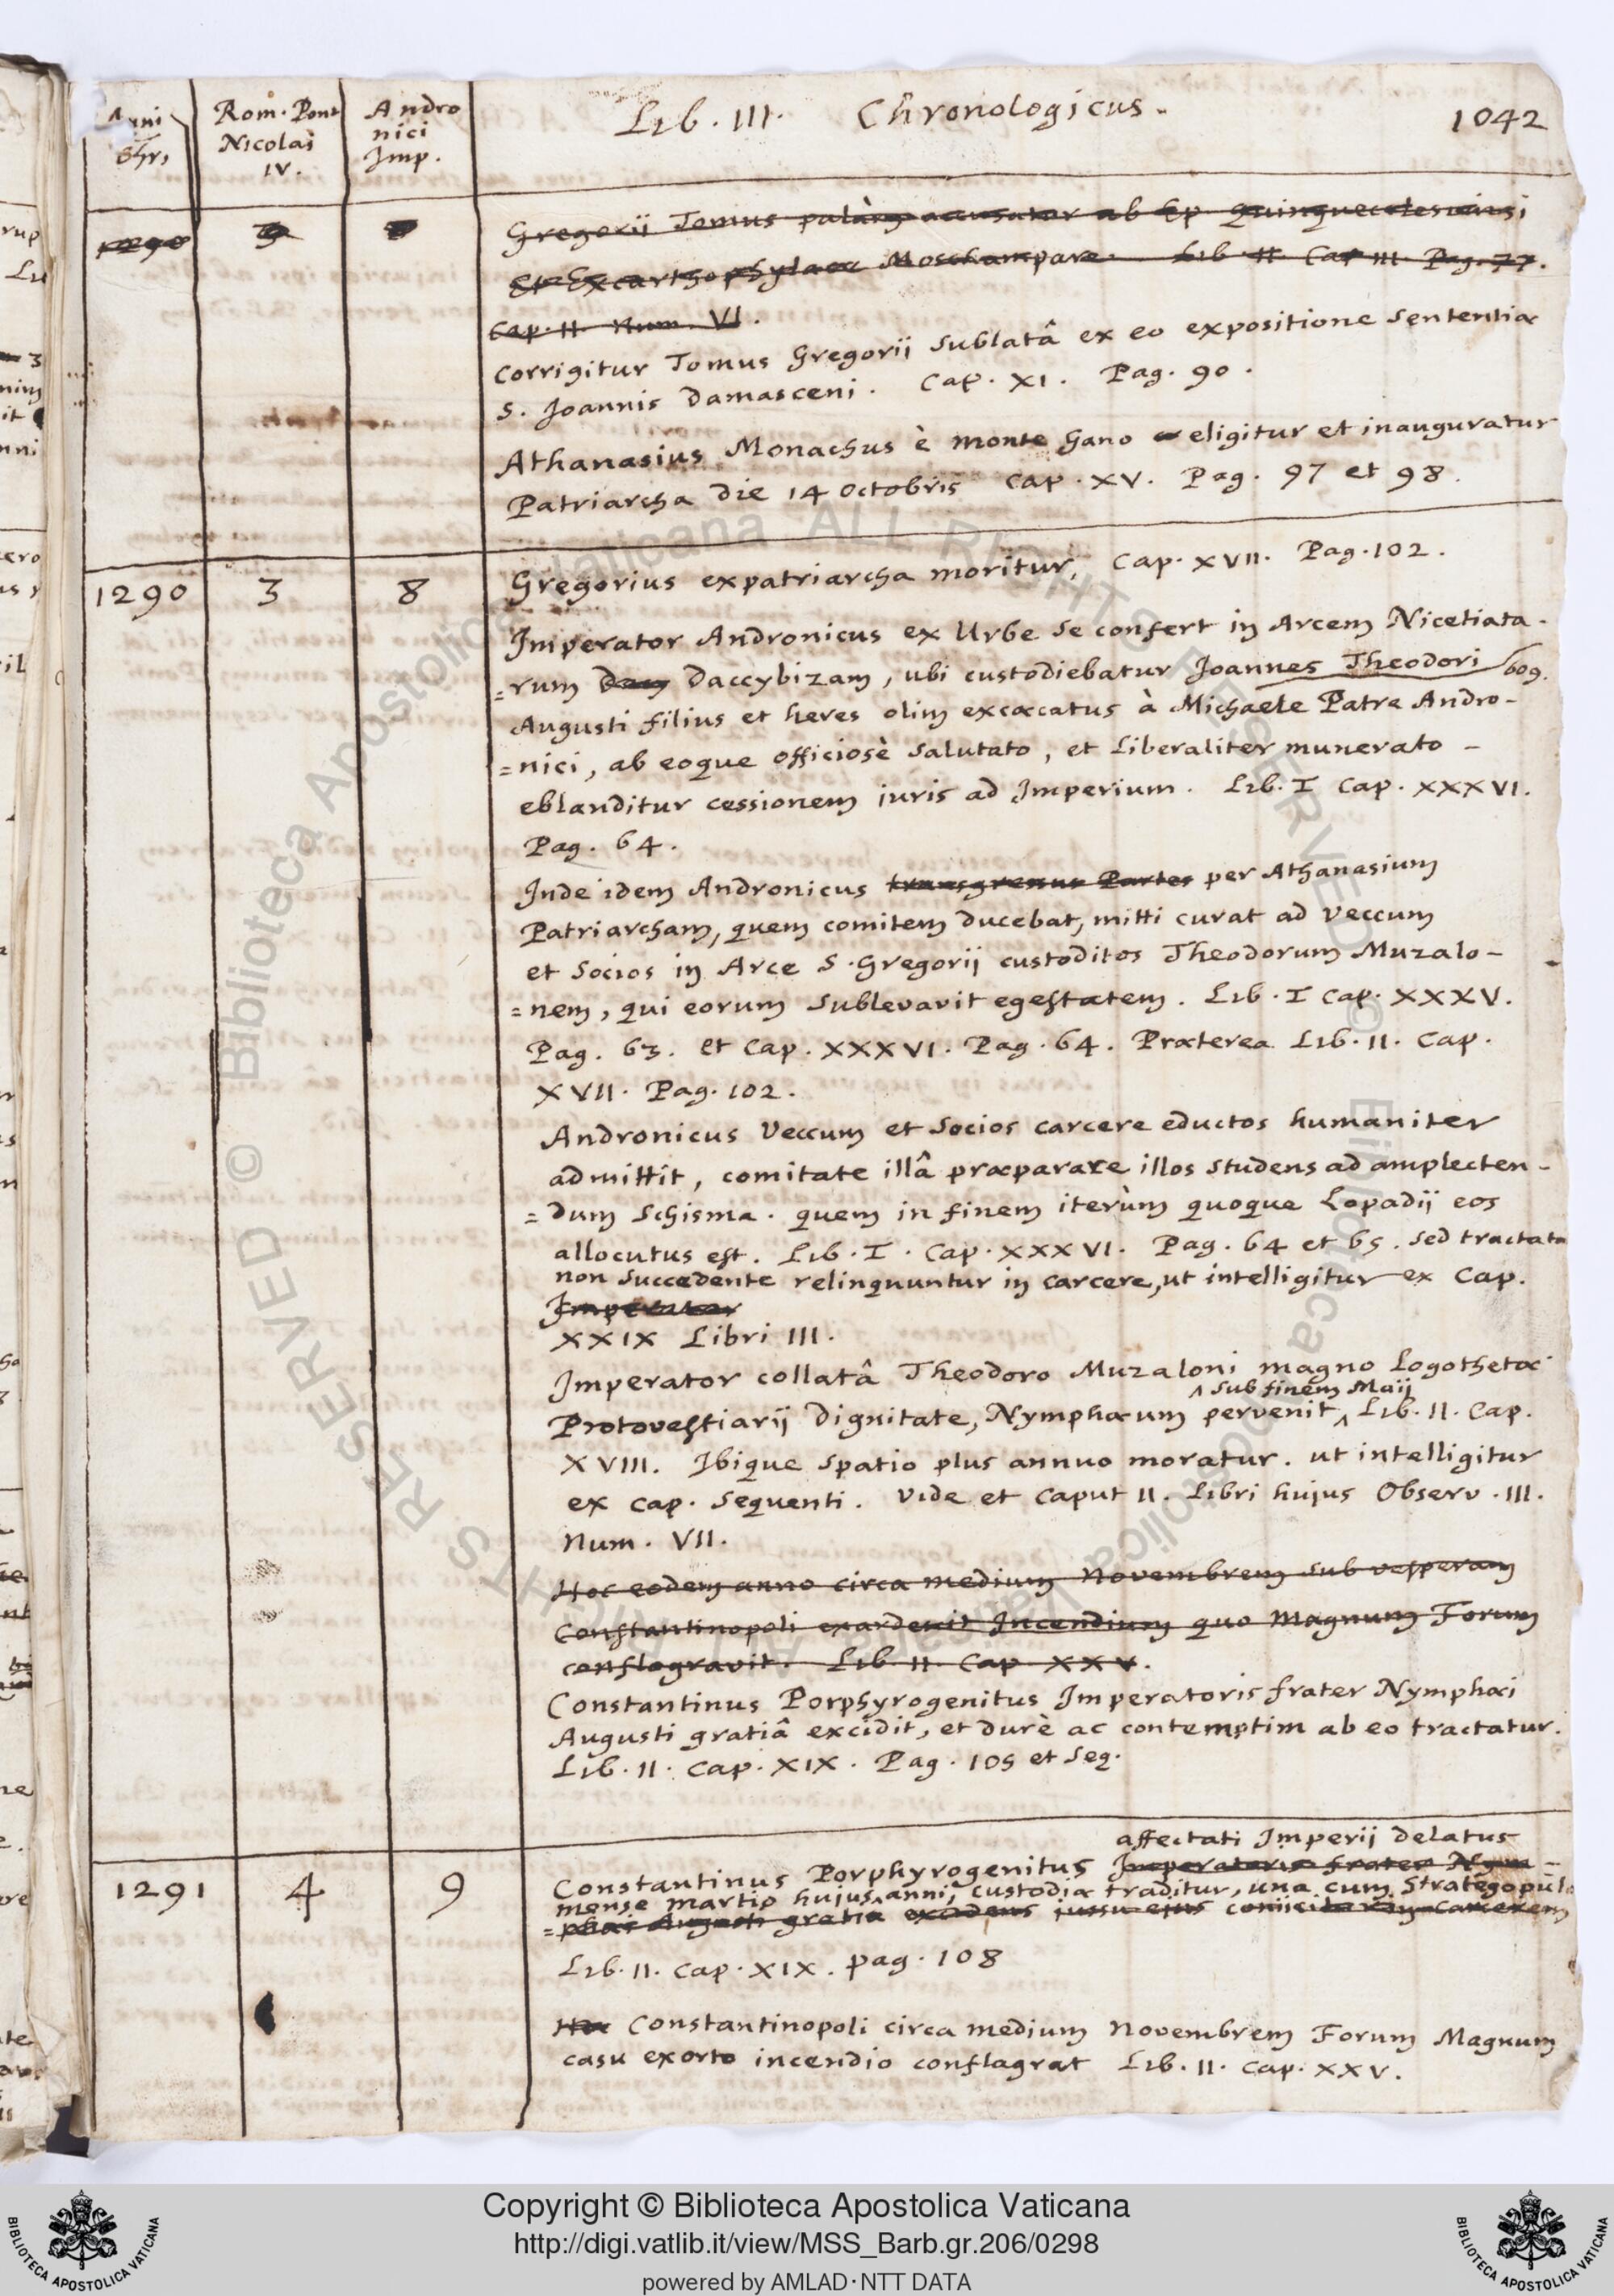 Anni Chri
Rom. Pont Nicolai IV.
Andronici Imp.
Lib. III. Chronologicus. 1042
1290
Gregorii Tomus palàm accusatur ab Ep Quinquecclesiensi
Et Excartophylace Moschampare. Lib II Cap III Pag. 77.
Cap. II Num. VI.
Corrigitur Tomus Gregorii sublatâ ex eo expositione sententiæ
S. Joannis Damasceni. Cap. XI. Pag. 90.
Athanasius Monachus è monte Gano eligitur et inauguratur
Patriarcha die 14 Octobris Cap. XV. Pag. 97 et 98.
1290 3 8 Gregorius expatriarcha moritur, Cap. XVII. Pag. 102.
Imperator Andronicus ex Urbe se confert in Arcem Nicetiata-
=rum Daccybizam, ubi custodiebatur Joannes Theodori 609.
Augusti filius et heres olim excæcatus à Michaele Patre Andro-
=nici, ab eoque officiosè salutato, et liberaliter munerato -
eblanditur cessionem iuris ad Imperium. Lib. I Cap. XXXVI.
Pag. 64.
Inde idem Andronicus per Athanasium
Patriarcham, quem comitem ducebat, mitti curat ad Veccum
et Socios in Arce S. Gregorii custoditos Theodorum Muzalo-
=nem, qui eorum sublevavit egestatem. Lib. I Cap. XXXV.
Pag. 63. et Cap. XXXVI. Pag. 64. Præterea Lib. II. Cap.
XVII. Pag. 102.
Andronicus Veccum et Socios carcere eductos humaniter
admittit, comitate illâ præparare illos studens ad amplecten-
=dum Schisma. quem in finem iterùm quoque Lopadij eos
allocutus est. Lib. I. Cap. XXXVI. Pag. 64 et 65. Sed tractatu
non succedente relinquuntur in carcere, ut intelligitur ex Cap.
Imperator
XXIX Libri III.
Imperator collatâ Theodoro Muzaloni magno Logothetæ
sub finem Maij
Protovestiarij dignitate, Nymphæum pervenit, Lib. II. Cap.
XVIII. Ibique spatio plus annuo moratur. ut intelligitur
ex cap. sequenti. Vide et Caput II. Libri hujus Observ. III.
Num. VII.
Hoc eodem anno circa medium Novembrem sub vesperam
Constantinopoli exardescit Incendium quo Magnum Forum
conflagravit. Lib. II. Cap XXV.
Constantinus Porphyrogenitus Imperatoris frater Nymphæi
Augusti gratiâ excidit, et durè ac contemptim ab eo tractatur.
Lib. II. Cap. XIX. Pag. 105 et seq.
affectati Imperij delatus
1291 4 9 Constantinus Porphyrogenitus Imperatoris frater Nym-
mense martio hujus anni, custodiæ traditur, una cum Strategopulo
=phæi Augusti gratia excidens jussu ejus coniicitur in carcerem
Lib. II. Cap. XIX. pag. 108
Hoc Constantinopoli circa medium Novembrem Forum Magnum
casu exorto incendio conflagrat Lib. II. Cap. XXV.
Copyright © Biblioteca Apostolica Vaticana
http://digi.vatlib.it/view/MSS_Barb.gr.206/0298
powered by AMLAD·NTT DATA
BIBLIOTECA APOSTOLICA VATICANA
BIBLIOTECA APOSTOLICA VATICANA
© Biblioteca Apostolica Vaticana ALL RIGHTS RESERVED
© Biblioteca Apostolica Vaticana ALL RIGHTS RESERVED